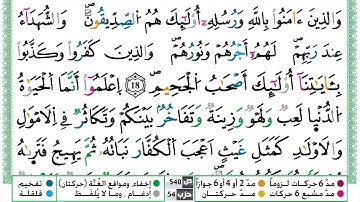 وَالَّذِينَ ءَامَنُوا بِاللَّهِ وَرُسُلِهِ أُوْلَٰئِكَ هُمُ الصِّدِّيقُونَ وَالشُّهَدَاءُ
عِندَ رَبِّهِمْ لَهُمْ أَجْرُهُمْ وَنُورُهُمْ وَالَّذِينَ كَفَرُوا وَكَذَّبُوا
بِـَٔايَٰتِنَا أُوْلَٰئِكَ أَصْحَٰبُ الْجَحِيمِ 18 اِعْلَمُوا أَنَّمَا الْحَيَوٰةُ
الدُّنْيَا لَعِبٌ وَلَهْوٌ وَزِينَةٌ وَتَفَاخُرٌ بَيْنَكُمْ وَتَكَاثُرٌ فِي الْأَمْوَٰلِ
وَالْأَوْلَٰدِ كَمَثَلِ غَيْثٍ أَعْجَبَ الْكُفَّارَ نَبَاتُهُ ثُمَّ يَهِيجُ فَتَرَىٰهُ
مدّ 6 حركات لزوماً مدّ 2 أو 4 أو 6 جوازاً ص 540 إخفاء ومواقع الغُنَّة (حركتان) تفخيم
مدّ مشبع 6 حركات مدّ حركتان حزب 54 إدغام، وما لا يُلفظ قلقلة